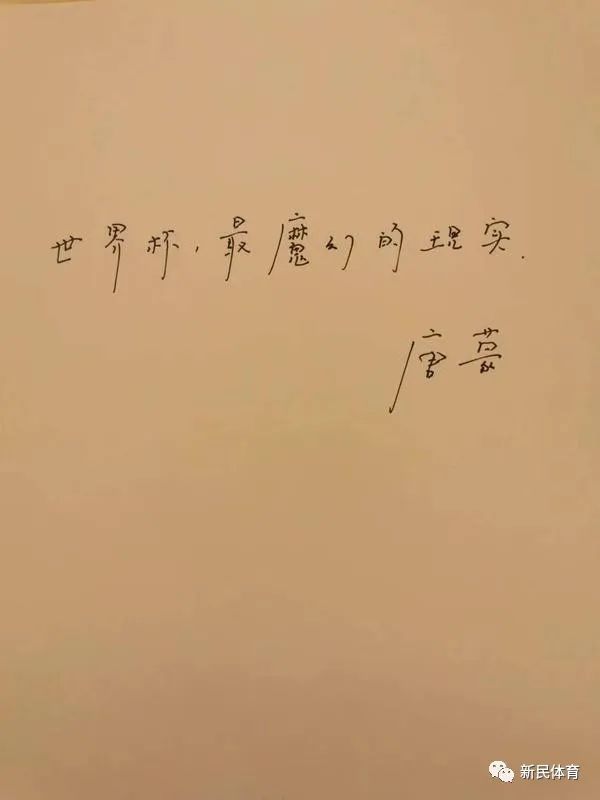 世界杯，最魔幻的现实.
唐蒙
新民体育